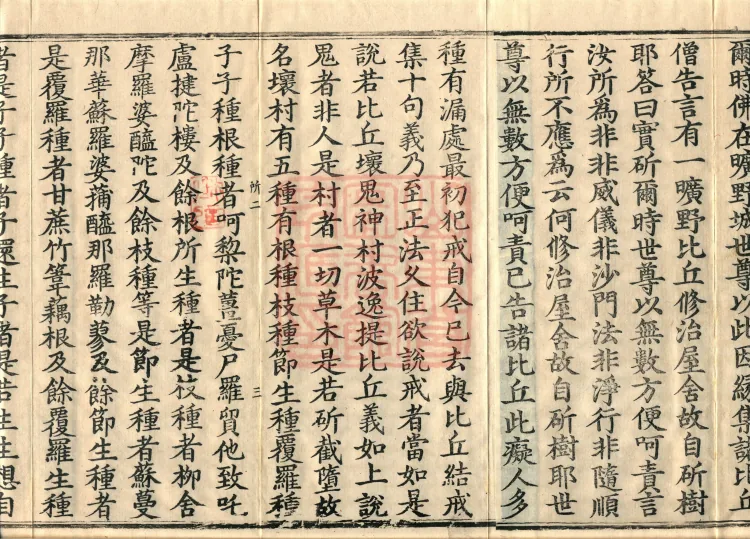 爾時佛在曠野城世尊以此因緣集諸比丘
僧告言有一曠野比丘修治屋舍故自斫樹
耶答曰實斫爾時世尊以無數方便呵責言
汝所爲非非威儀非沙門法非淨行非隨順
行所不應爲云何修治屋舍故自斫樹耶世
尊以無數方便呵責已告諸比丘此癡人多
種有漏處最初犯戒自今已去與比丘結戒
集十句義乃至正法久住欲說戒者當如是
說若比丘壞鬼神村波逸提比丘義如上說
鬼者非人是村者一切草木是若斫截墮故
名壞村有五種有根種枝種節生種覆羅種
所二 三
子子種根種者呵梨陀薑憂尸羅貿他致吒
盧揵陀樓及餘根所生種者是枝種者柳舍
摩羅婆醯陀及餘枝種等是節生種者蘇蔓
那華蘇羅婆蒱醯那羅勒蓼及餘節生種者
是覆羅種者甘蔗竹葦藕根及餘覆羅生種
者是子子種者子還生子者是若生生想自